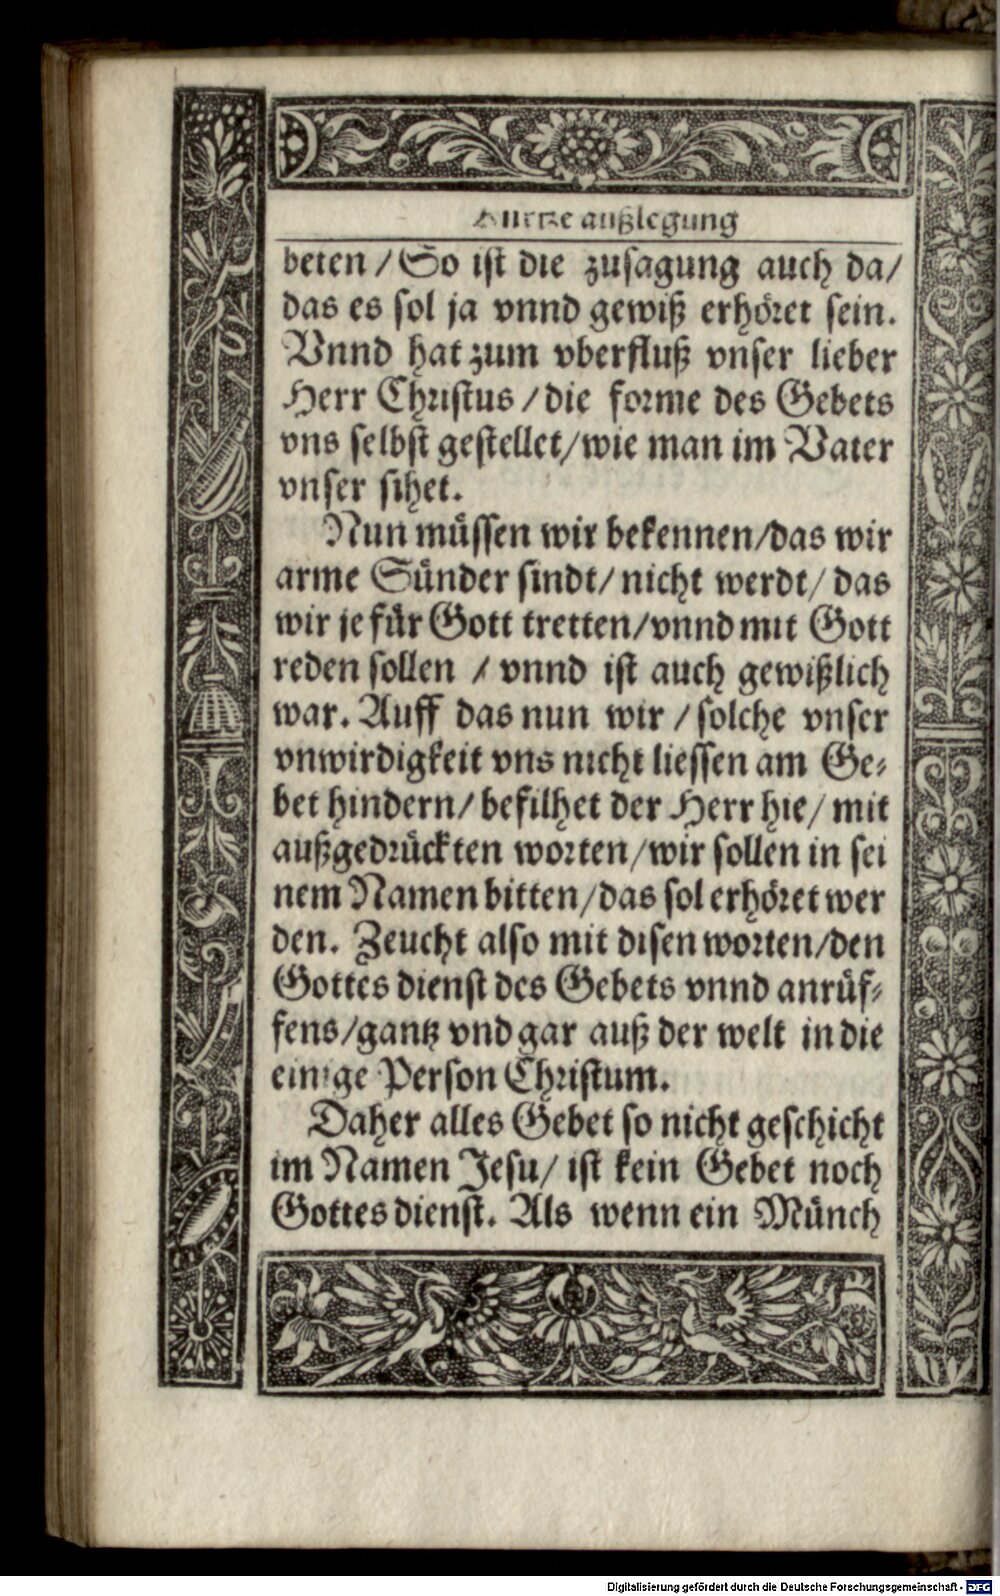 Kurtze außlegung
beten / So ist die zusagung auch da /
das es sol ja vnnd gewiß erhöret sein.
Vnnd hat zum vberfluß vnser lieber
Herr Christus / die forme des Gebets
vns selbst gestellet / wie man im Vater
vnser sihet.
Nun müssen wir bekennen / das wir
arme Sünder sindt / nicht werdt / das
wir je für Gott tretten / vnnd mit Gott
reden sollen / vnnd ist auch gewißlich
war. Auff das nun wir / solche vnser
vnwirdigkeit vns nicht liessen am Ge-
bet hindern / befilhet der Herr hie / mit
außgedrückten worten / wir sollen in sei
nem Namen bitten / das sol erhöret wer
den. Zeucht also mit disen worten / den
Gottes dienst des Gebets vnnd anrüf-
fens / gantz vnd gar auß der welt in die
einige Person Christum.
Daher alles Gebet so nicht geschicht
im Namen Jesu / ist kein Gebet noch
Gottes dienst. Als wenn ein Münch
Digitalisierung gefördert durch die Deutsche Forschungsgemeinschaft - DFG